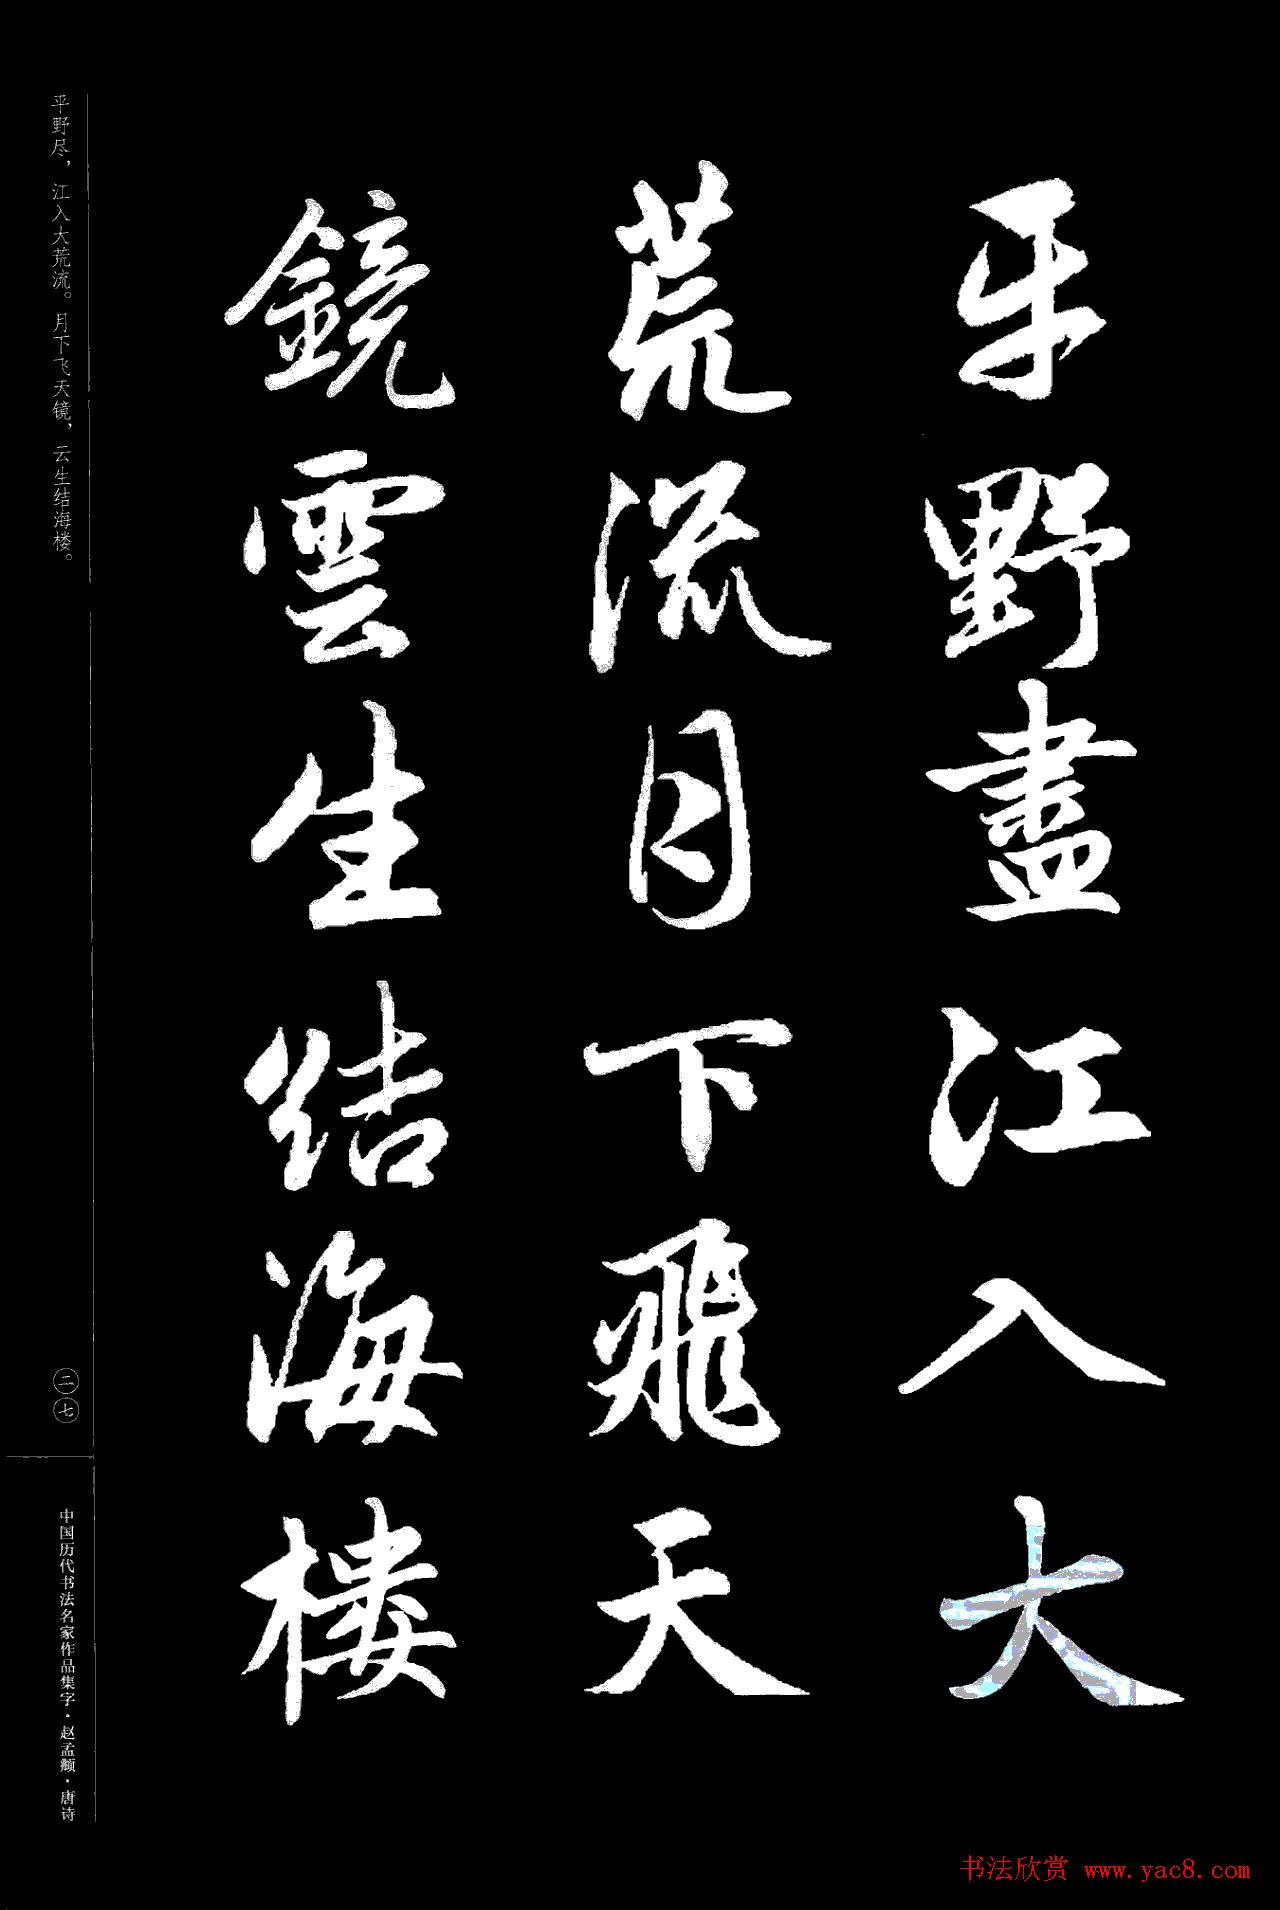 平野盡江入大
荒流月下飛天
鏡雲生结海楼
平野尽，江入大荒流。月下飞天镜，云生结海楼。
二七
中国历代书法名家作品集字·赵孟頫·唐诗
书法欣赏 www.yac8.com